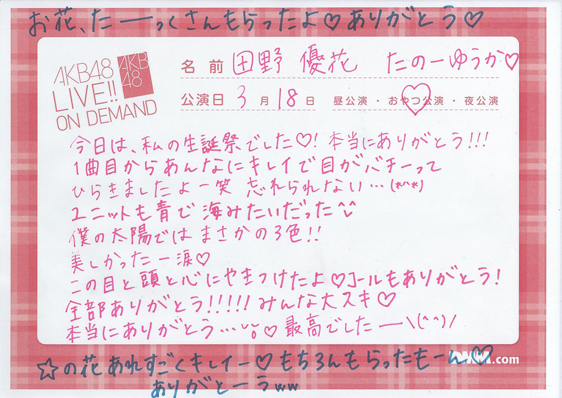 お花、たーーっくさんもらったよ♡ありがとう♡
AKB48
LIVE!!
ON DEMAND
AKB
48
名前 田野 優花 たのーゆうか♡
公演日 3月18日 昼公演・おやつ公演・夜公演
今日は、私の生誕祭でした♡!本当にありがとう!!!
1曲目からあんなにキレイで目がバチーって
ひらきましたよー笑 忘れられない…(*^^*)
ユニットも青で海みたいだった^^
僕の太陽ではまさかの3色!!
美しかったー涙♡
この目と頭と心にやきつけたよ♡コールもありがとう!
全部ありがとう!!!!!みんな大スキ♡
本当にありがとう…♡最高でしたー\(^^)/
☆の花あれすごくキレイー♡もちろんもらったもーん♡
.com
ありがとーうww